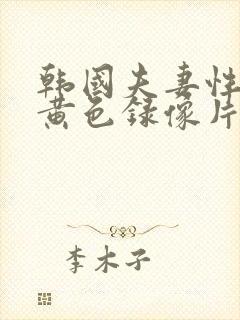 韩国夫妻性
黄色録像片
李木子